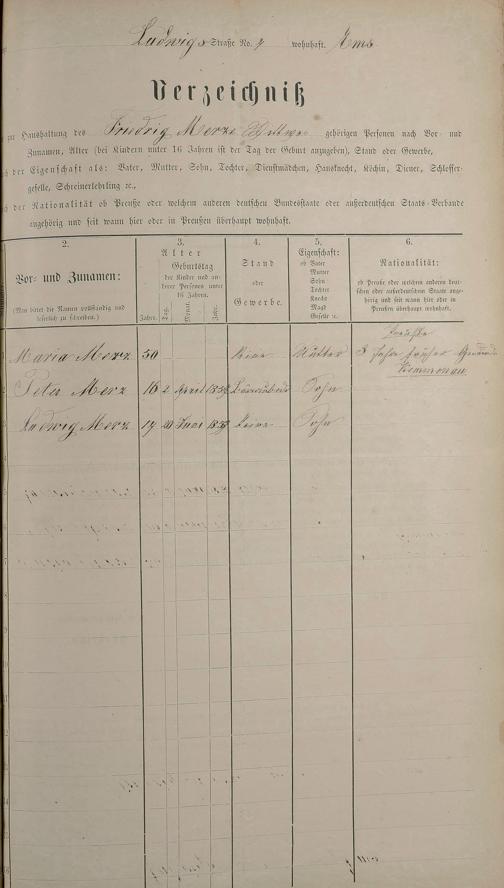 Ludwigs Straße No. 7 wohnhaft. Ems
Verzeichniß
zur Haushaltung des Friedrig Merz Wittwe gehörigen Personen nach Vor- und
Zunamen, Alter (bei Kindern unter 16 Jahren ist der Tag der Geburt anzugeben), Stand oder Gewerbe,
der Eigenschaft als: Vater, Mutter, Sohn, Tochter, Dienstmädchen, Hausknecht, Köchin, Diener, Schlosser-
geselle, Schreinerlehrling ꝛc.,
der Nationalität ob Preuße oder welchem anderen deutschen Bundesstaate oder außerdeutschen Staats-Verbande
angehörig und seit wann hier oder in Preußen überhaupt wohnhaft.
2.
Vor- und Zunamen:
(Man bittet die Namen vollständig und
leserlich zu schreiben.)
3.
Alter
Geburtstag
der Kinder und an-
derer Personen unter
16 Jahren.
Jahre. Tag. Monat. Jahr.
4.
Stand
oder
Gewerbe.
5.
Eigenschaft:
ob Vater
Mutter
Sohn
Tochter
Knecht
Magd
Geselle ꝛc.
6.
Nationalität:
ob Preuße oder welchem anderen deut-
schen oder außerdeutschen Staate ange-
hörig und seit wann hier oder in
Preußen überhaupt wohnhaft.
Maria Merz 50 Keine Mutter 8 Jahr früher
Peter Merz 16 2 April Sohn
Ludwig Merz Juni Keine Sohn